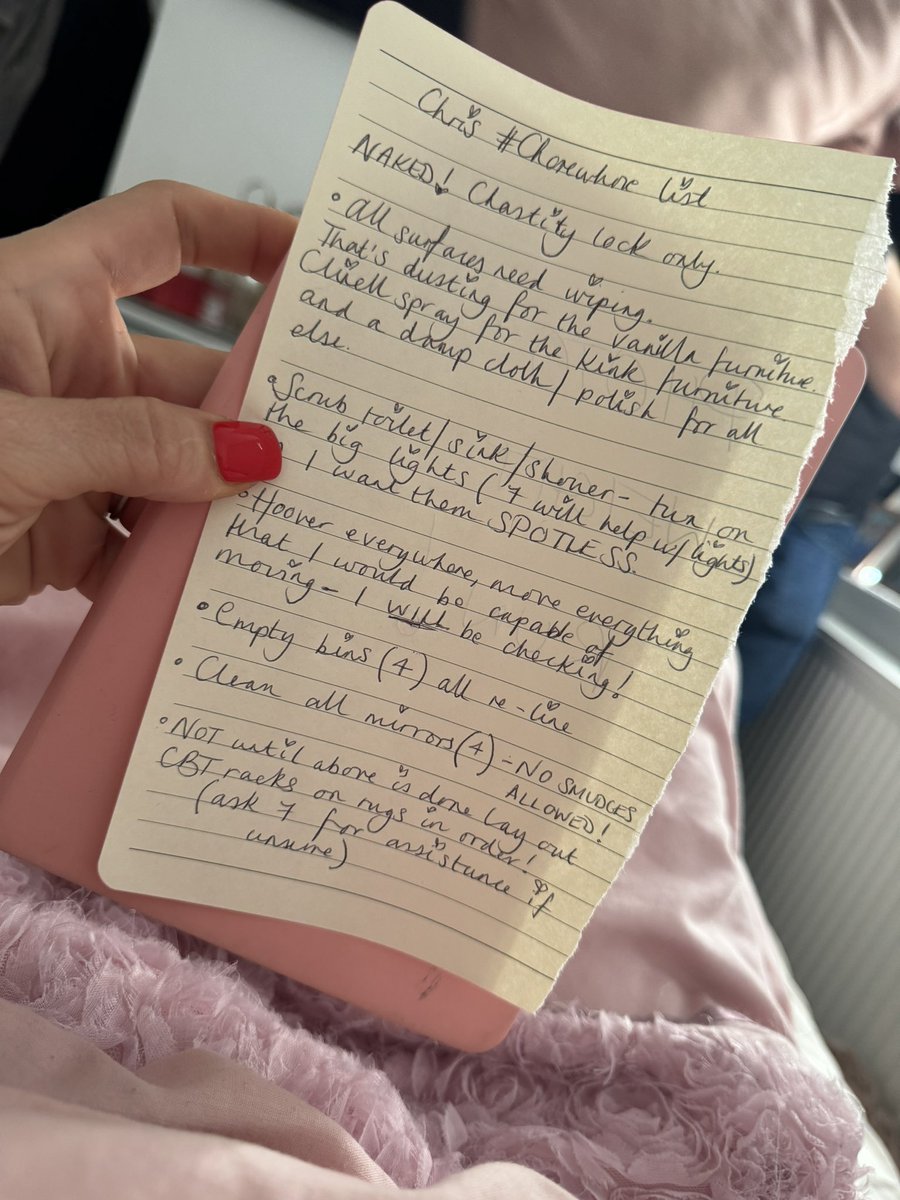 Chris #Chorewhore list
NAKED! Chastity lock only.
• All surfaces need wiping.
That's dusting for the vanilla furniture.
Clinell spray for the kink furniture
and a damp cloth / polish for all
else.
• Scrub toilet / sink / shower - turn on
the big lights (7 will help w/ lights)
I want them SPOTLESS.
• Hoover everywhere, move everything
that I would be capable of
moving - I will be checking!
• Empty bins (4) all re-line
• Clean all mirrors (4) - NO SMUDGES
ALLOWED!
• NOT until above is done lay out
CBT racks on rugs in order!
(ask 7 for assistance if
unsure)